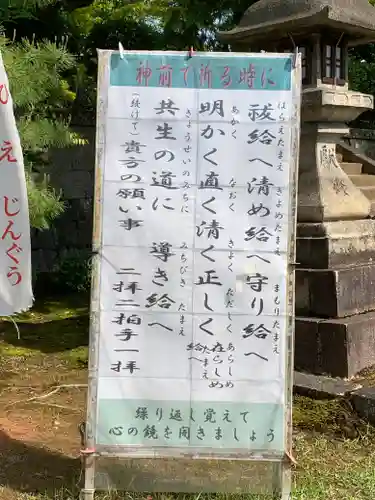 神前で祈る時に
祓給へ清め給へ守り給へ
はらえたまえ きよめたまえ まもりたまえ
明かく直く清く正しく在らしめ給へ
あかく なおく きよく ただしく あらしめ たまえ
共生の道に 導き給へ
きょうせいのみちに みちびき たまえ
(続けて)貴方の願い事 二拝二拍手一拝
繰り返し覚えて
心の鏡を磨きましょう
え じんぐう
献